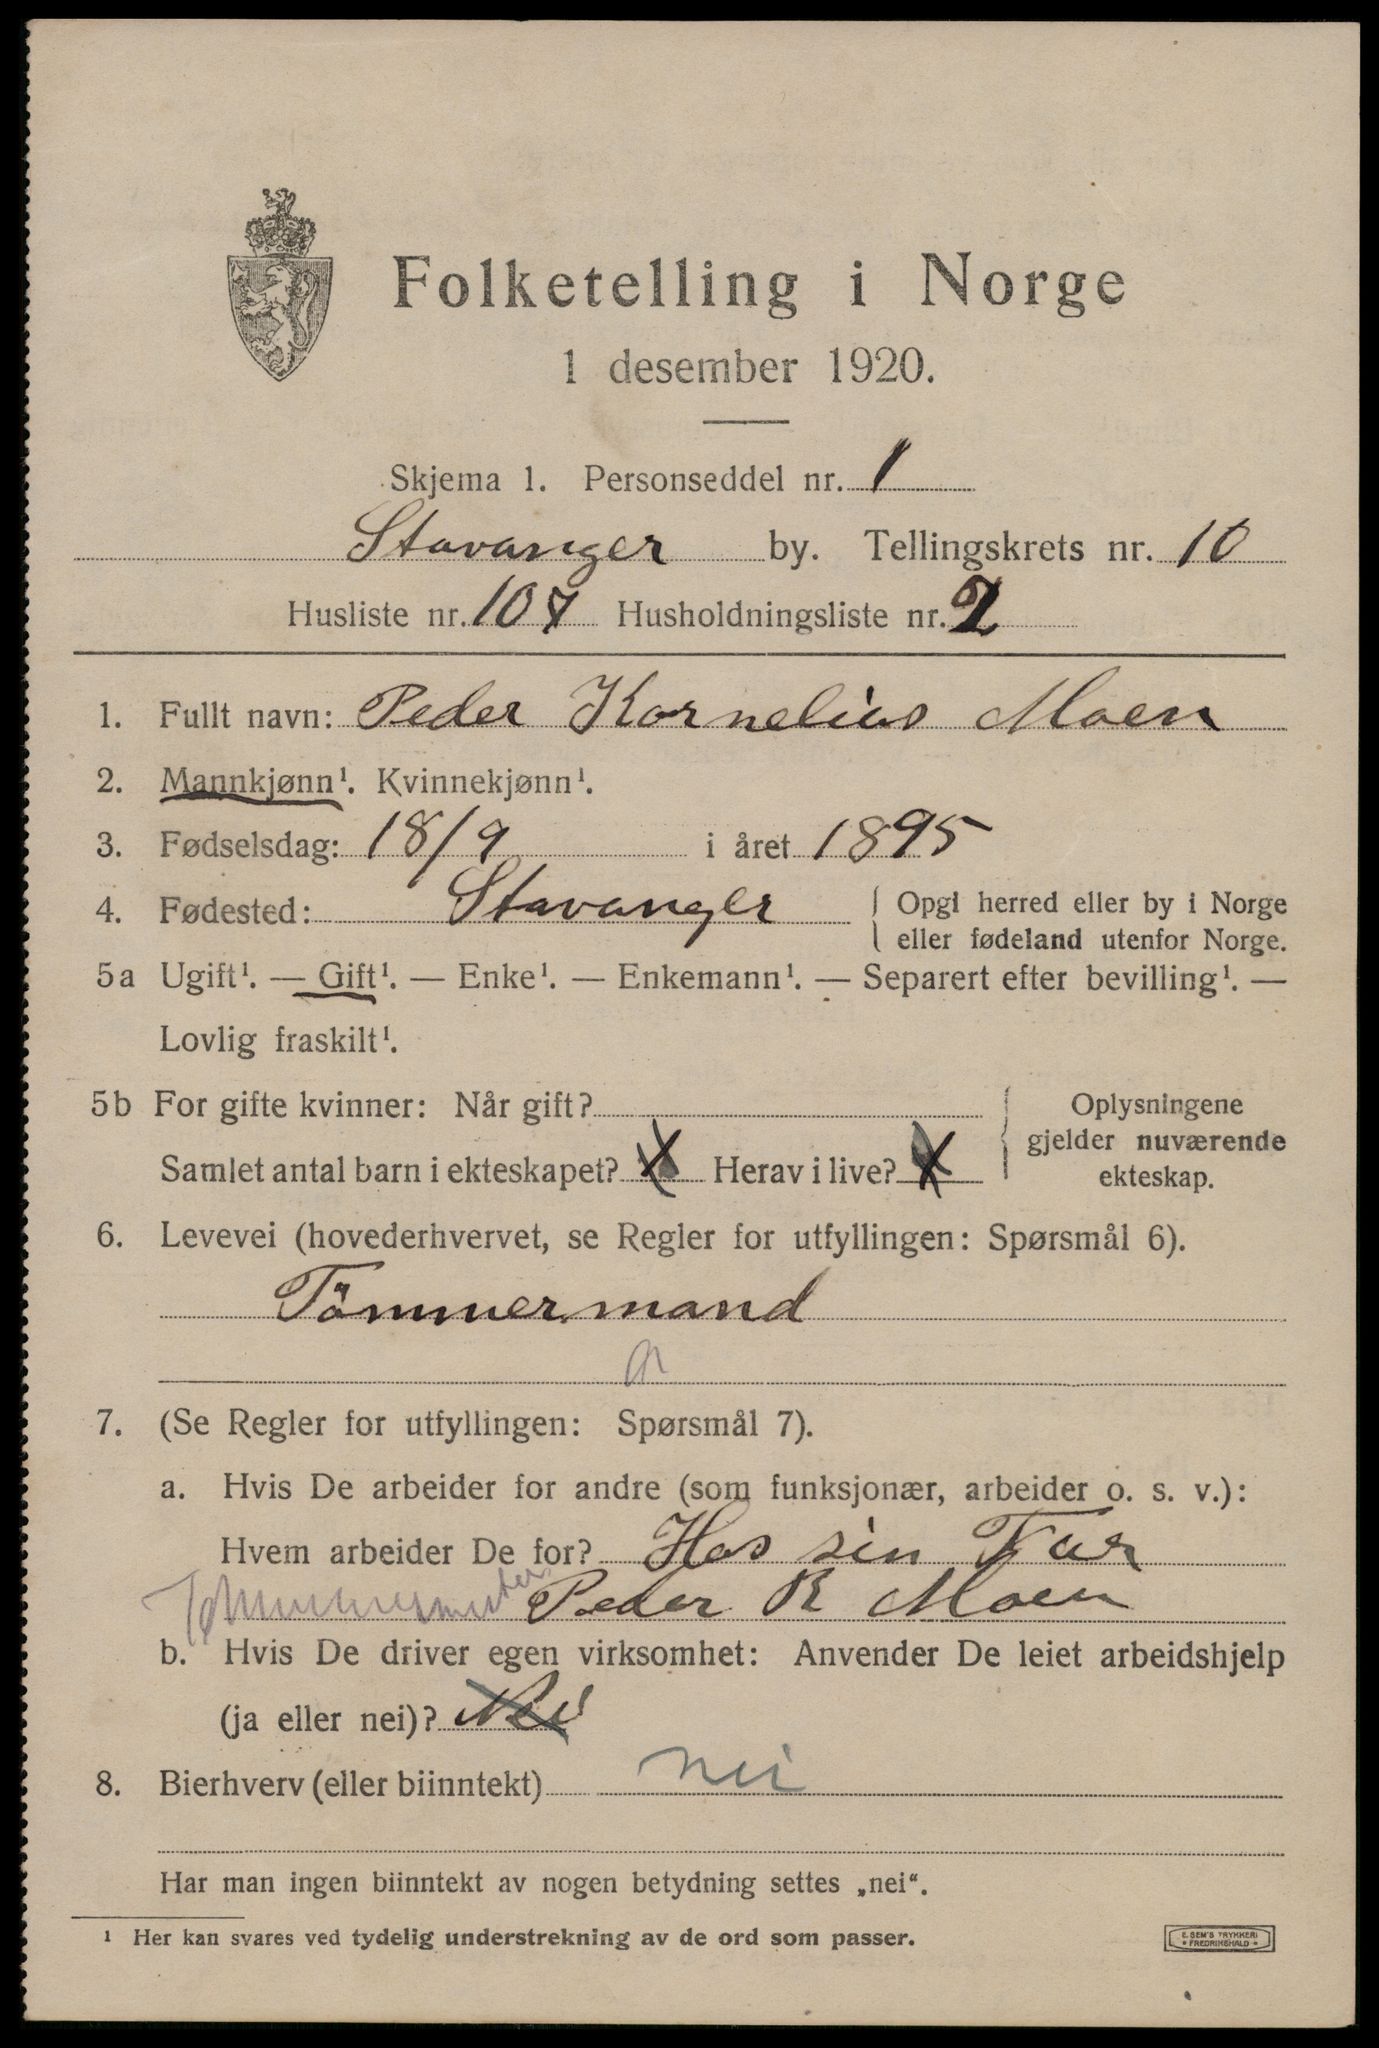 Folketelling i Norge
1 desember 1920.
Skjema 1. Personseddel nr. 1
Stavanger by. Tellingskrets nr. 10
Husliste nr. 107 Husholdningsliste nr. 2
1. Fullt navn: Peder Kornelius Moen
2. Mannkjønn¹. Kvinnekjønn¹.
3. Fødselsdag: 18/9 i året 1895
4. Fødested: Stavanger { Opgi herred eller by i Norge
eller fødeland utenfor Norge.
5a Ugift¹. — Gift¹. — Enke¹. — Enkemann¹. — Separert efter bevilling¹. —
Lovlig fraskilt¹.
5b For gifte kvinner: Når gift? { Oplysningene
gjelder nuværende
Samlet antal barn i ekteskapet? X Herav i live? X
ekteskap.
6. Levevei (hovederhvervet, se Regler for utfyllingen: Spørsmål 6).
Tömmermand
7. (Se Regler for utfyllingen: Spørsmål 7).
a. Hvis De arbeider for andre (som funksjonær, arbeider o. s. v.):
Hvem arbeider De for? Hos sin Far
Tømmermester Peder R Moen
b. Hvis De driver egen virksomhet: Anvender De leiet arbeidshjelp
(ja eller nei)? Nei
8. Bierhverv (eller biinntekt) nei
Har man ingen biinntekt av nogen betydning settes „nei“.
¹ Her kan svares ved tydelig understrekning av de ord som passer.
E. SEM'S TRYKKERI
• FREDRIKSHALD •